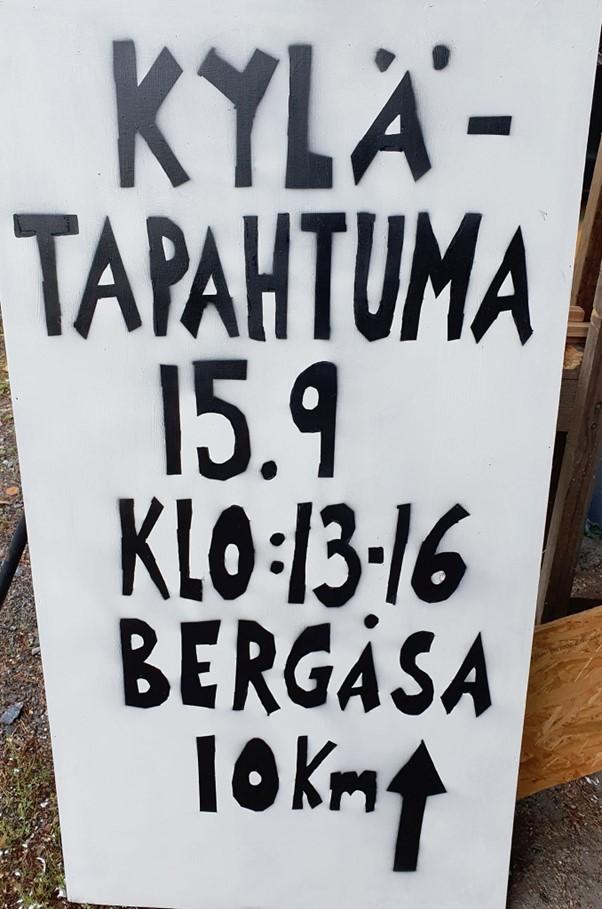 KYLÄ-
TAPAHTUMA
15.9
KLO:13-16
BERGÅSA
10Km ↑